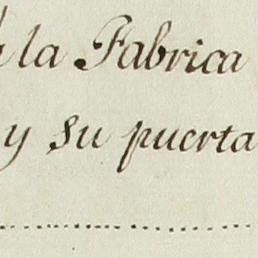 la Fabrica
y su puerta